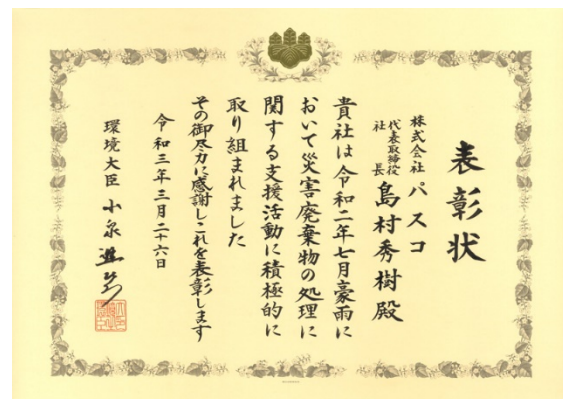 表彰状
株式会社パスコ
代表取締役
社長
島村秀樹殿
貴社は令和二年七月豪雨に
おいて災害廃棄物の処理に
関する支援活動に積極的に
取り組まれました
その御尽力に感謝しこれを表彰します
令和三年三月二十六日
環境大臣 小泉進次郎